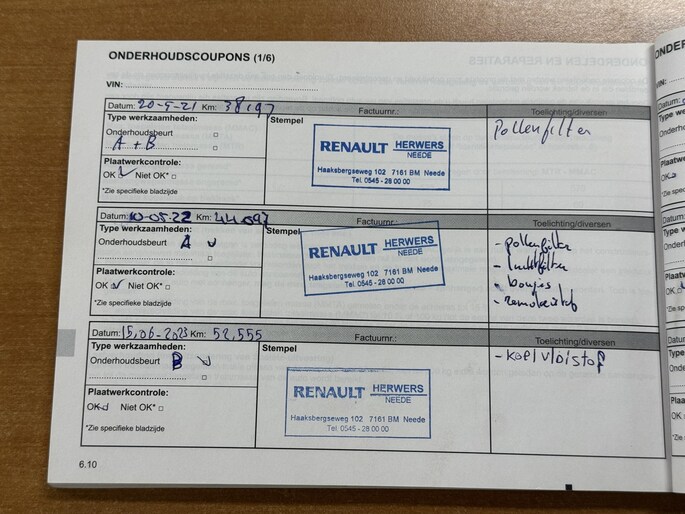 ONDERHOUDSCOUPONS (1/6)
VIN:
Datum: 20-5-21 Km: 38197 Factuurnr.: Toelichting/diversen
Type werkzaamheden: Stempel Pollenfilter
Onderhoudsbeurt
A + B
RENAULT HERWERS
NEEDE
Haaksbergseweg 102 7161 BM Neede
Tel. 0545 - 28 00 00
Plaatwerkcontrole:
OK Niet OK*
*Zie specifieke bladzijde
Datum: 10-05-22 Km: 44.697 Factuurnr.: Toelichting/diversen
Type werkzaamheden: Stempel
Onderhoudsbeurt A
RENAULT HERWERS
NEEDE
Haaksbergseweg 102 7161 BM Neede
Tel. 0545 - 28 00 00
- pollenfilter
- luchtfilter
- bougies
- remvloeistof
Plaatwerkcontrole:
OK Niet OK*
*Zie specifieke bladzijde
Datum: 15-06-2023 Km: 52.555 Factuurnr.: Toelichting/diversen
Type werkzaamheden: Stempel
Onderhoudsbeurt B
- koelvloistof
RENAULT HERWERS
NEEDE
Haaksbergseweg 102 7161 BM Neede
Tel. 0545 - 28 00 00
Plaatwerkcontrole:
OK Niet OK*
*Zie specifieke bladzijde
6.10